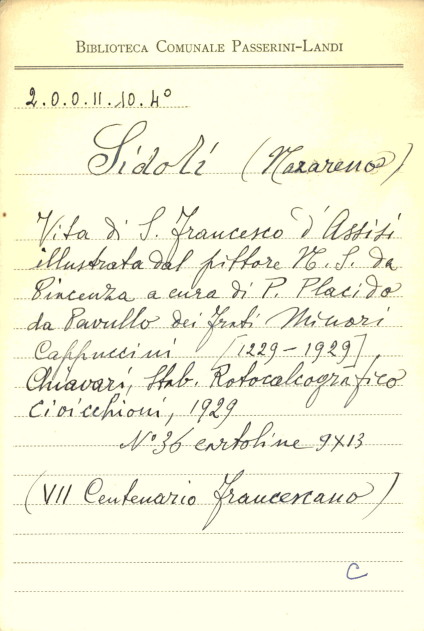 BIBLIOTECA COMUNALE PASSERINI-LANDI
2.0.0.II.10.4°
Sidoli (Nazareno)
Vita di S. Francesco d'Assisi
illustrata dal pittore N. S. da
Piacenza a cura di P. Placido
da Pavullo dei Frati Minori
Cappuccini [1229-1929]
Chiavari, Stab. Rotocalcografico
1929
N° 36 cartoline 9x13
(VII Centenario Francescano)
C